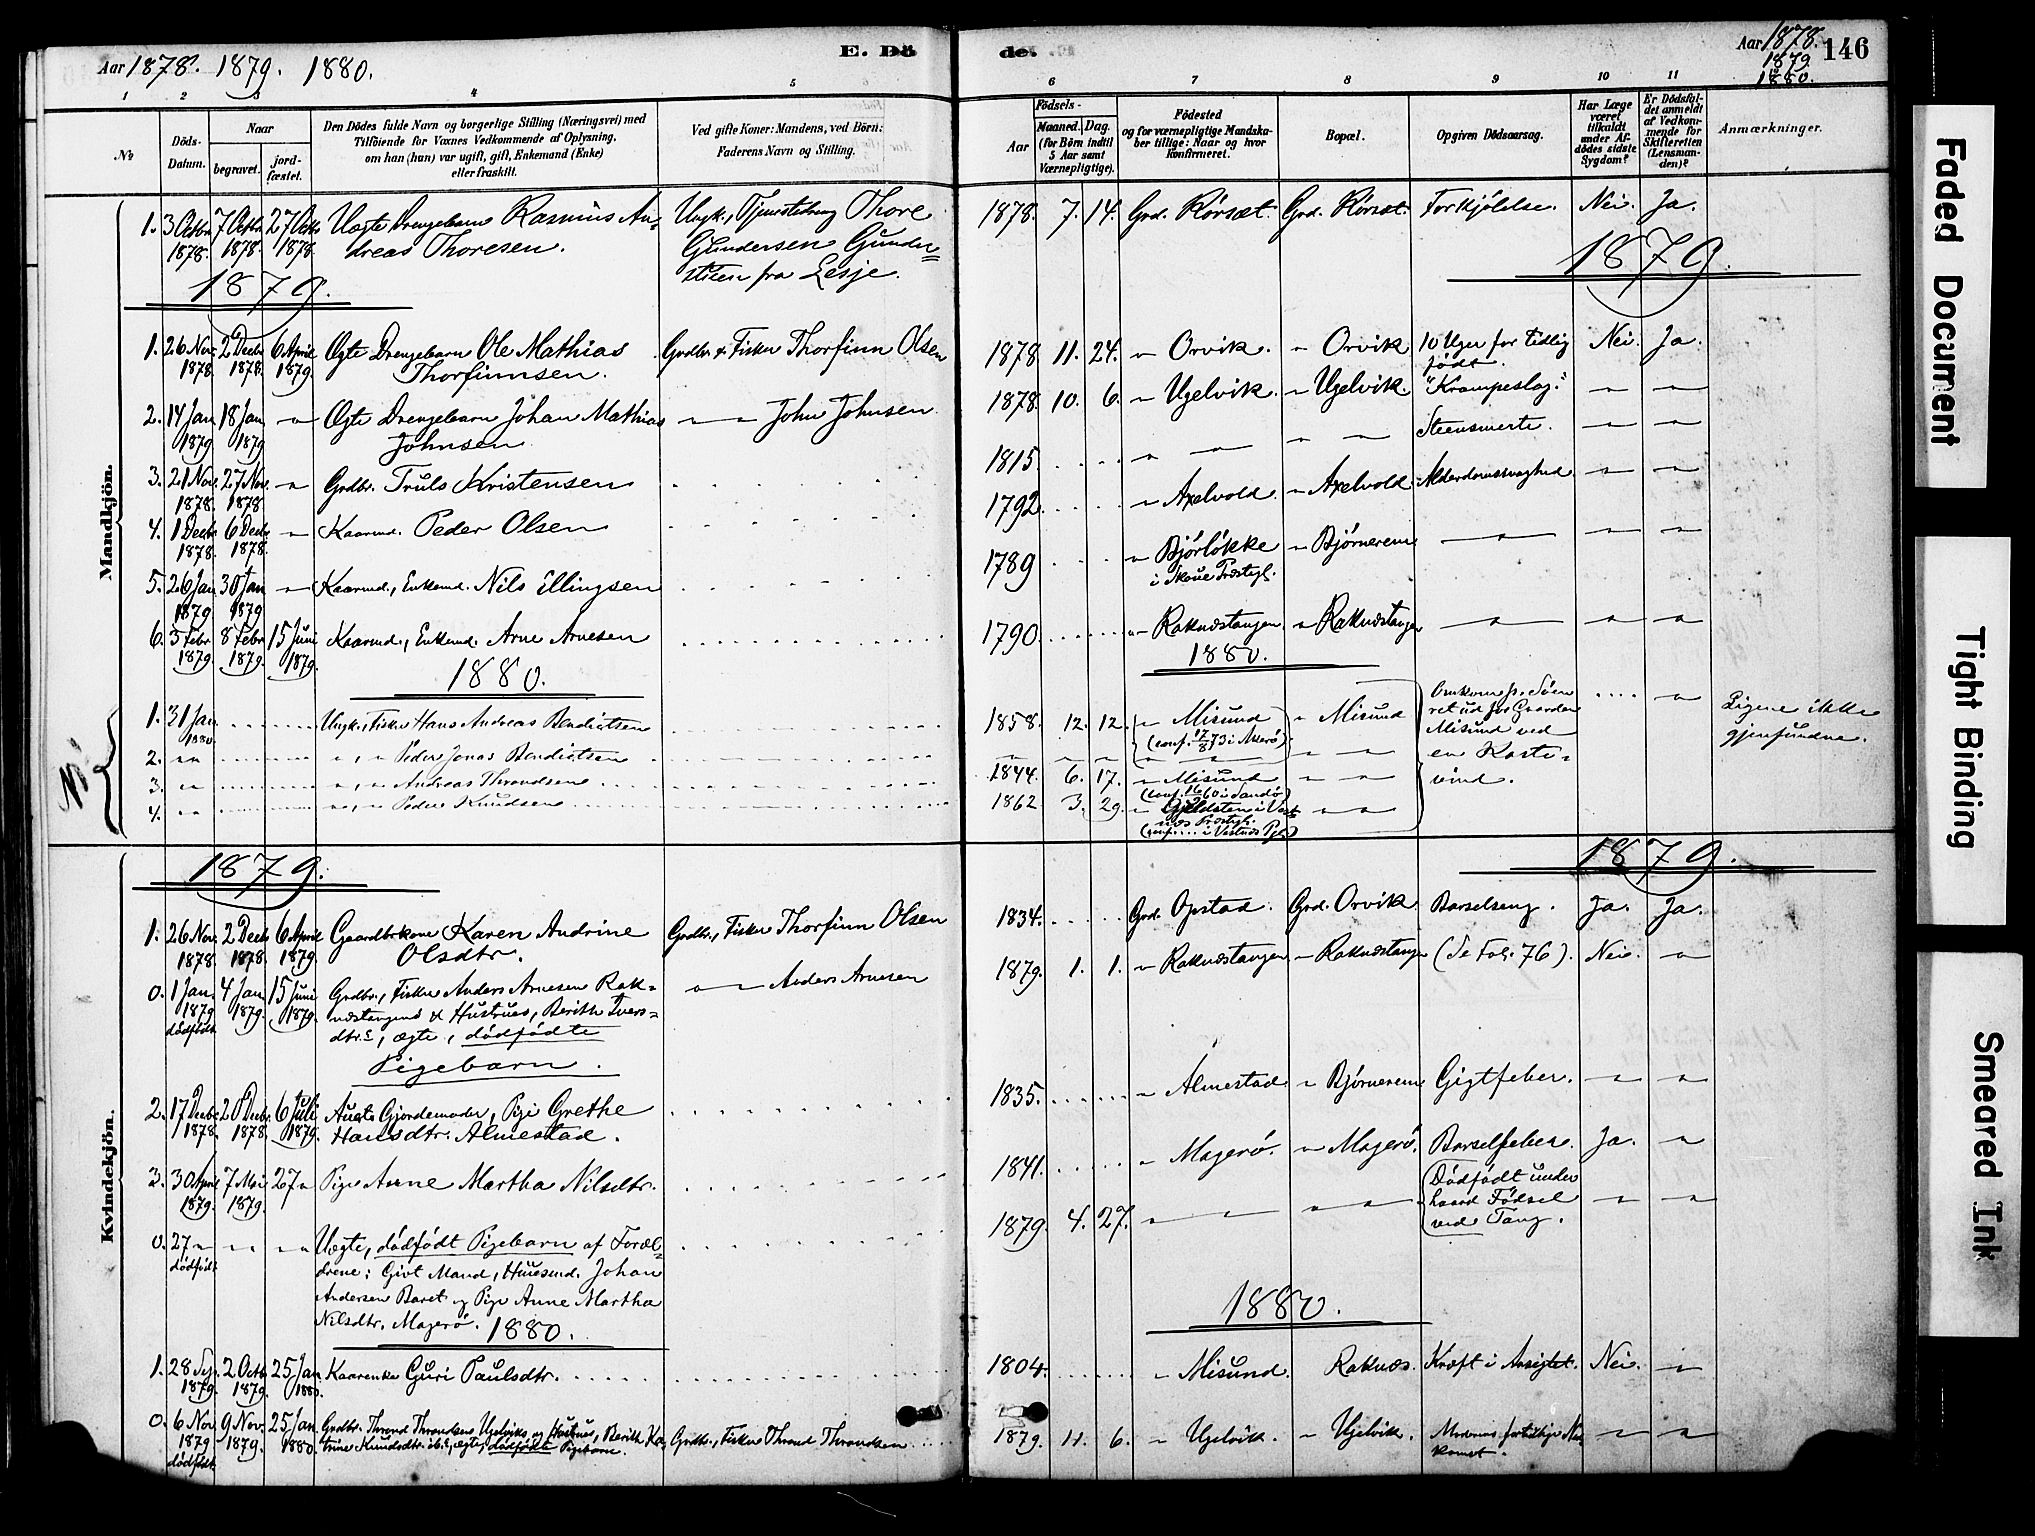 Aar 1878. 1879. 1880.
E. Dö
de.
Aar 1878. 146
1879.
1880.
1 2 3 4 5 6 7 8 9 10 11
No
Döds-Datum.
Naar
begravet.
jord-fæstet.
Den Dödes fulde Navn og borgerlige Stilling (Næringsvei) med
Tilföiende for Voxnes Vedkommende af Oplysning,
om han (hun) var ugift, gift, Enkemand (Enke)
eller fraskilt.
Ved gifte Koner: Mandens, ved Börn:
Faderens Navn og Stilling.
Födsels-
Aar
Maaned. Dag.
(for Börn indtil
5 Aar samt
Værnepligtige).
Födested
og for værnepligtige Mandska-
ber tillige: Naar og hvor
konfirmeret.
Bopæl.
Opgiven Dödsaarsag.
Har Læge
været
tilkaldt
under Af-
dödes sidste
Sygdom?
Er Dödsfal-
det anmeldt
af Vedkom-
mende for
Skifteretten
(Lensman-
den)?
Anmærkninger.
Mandkjön.
1. 3 Octbr 1878. 7 Octbr 1878. 27 Octb. 1878. Uægte Drengebarn Rasmus An-
dreas Thoresen.
Ungk., Tjenestedreng Thore
Gundersen
fra Lesje.
1878. 7. 14. Grd. Rörsæt. Grd. Rörsæt. Forkjölelse. Nei. Ja.
1879.
1879.
1. 26 Nov. 1878. 2 Decbr 1878. 6 April 1879. Ægte Drengebarn Ole Mathias
Thorfinnsen.
Grdbr. & Fisker Thorfinn Olsen
1878 11. 24. " Orvik. " Orvik 10 Uger for tidlig
födt. Nei. Ja.
2. 14 Jan 1879 18 Jan 1879 " Ægte Drengebarn Johan Mathias
Johnsen
" " John Johnsen
1878. 10. 6. " Ugelvik. " Ugelvik. "Krampeslag." " "
3. 21 Nov. 1878. 27 Nov. 1878 " Grdbr. Truls Kristensen
1815. " " " " Steensmerte. " "
4. 1 Decbr 1878. 6 Decbr 1878. " Kaarmd. Peder Olsen
1792. " Axelvold. " Axelvold. Alderdomssvaghed. " "
5. 26 Jan. 1879 30 Jan 1879 " Kaarmd., Enkemd. Nils Ellingsen
1789 " Björlökke
i Skoue Præstegj. " Björnerem " " "
6. 3 Febr 1879. 8 Febr 1879. 15 Juni 1879. Kaarmd., Enkemd. Arne Arnesen
1790. " Raknæstangen " Raknæstangen " " "
1880.
1880.
1. 31 Jan 1880. Ungk., Fisker Hans Andreas Bendictsen
1858. 12. 12. " Misund " Misund
(conf. 17/8 73 i Akerö)
2. " " " , " Peder Jonas Bendictsen
3. " " " , " Andreas Throndsen
1844. 6. 17. " Misund " "
(conf. 16/9 60 i Sandö)
4. " " " , " Peder Knudsen
1862 3. 29. " Gjeldsten i Vest-
næs Præstegj.
(conf. .... i Vestnæs Pgj.)
Omkom p. Söen
ret ud for Gaarden
Misund ved
en Kaste-
vind.
Ligene ikke
gjenfundne.
Kvindekjön.
1879.
1879.
1. 26 Nov. 1878. 2 Decb 1878. 6 April 1879. Gaardbrkone Karen Andrine
Olsdtr.
Grdbr., Fisker Thorfinn Olsen
1834. Grd. Opstad. Grd. Orvik. Barselseng. Ja. Ja.
0. 1 Jan. 1879 dödfödt 4 Jan. 1879. 15 Juni 1879. Grdbr., Fisker Anders Arnesen Rak-
næstangens & Hustrues, Berithe Ivers-
dtr.s, ægte, dödfödte
Pigebarn.
" " Anders Arnesen
1879. 1. 1. " Raknæstangen " Raknæstangen (Se Fol. 76). Nei. "
2. 17 Decbr. 1878. 20 Decbr. 1878. 6 Juli 1879. Gjordemoder, Pige Grethe
Hansdtr. Almestad.
1835. " Almestad " Björnerem Gigtfeber. " "
3. 30 April 1879. 7 Mai 1879. 27 " Pige Anne Martha Nilsdtr.
1841. " Magerö. " Magerö. Barselfeber. Ja. "
0. 27 " dödfödt " " " " Uægte, dödfödt Pigebarn af Foræl-
drene: Givt Mand, Huusmd. Johan
Andersen Baret og Pige Anne Martha
Nilsdtr. Magerö.
1879. 4. 27. " " " " (Dödfödt under
haard Födsel
ved Tang. " "
1880.
1880.
1. 28 Sep. 1879. 2 Octb. 1879. 25 Jan 1880. Kaarenke Guri Paulsdtr.
1804. " Misund. Raknæs. Kræft i Ansigtet. Nei. "
0. 6 Nov. 1879 dödfödt. 9 Nov. 1879. 25 Jan. 1880. Grdbr. Thrond Throndsens Ugelviks og Hustrues, Berith Ka-
trine Knudsdtr. ibid., ægte, dödfödt Pigebarn.
Grdbr., Fisker Thrond Throndsen
1879. 11. 6. " Ugelvik. " Ugelvik. Moderens fortidlige Ned-
komst. " "
Faded Document
Tight Binding
Smeared Ink